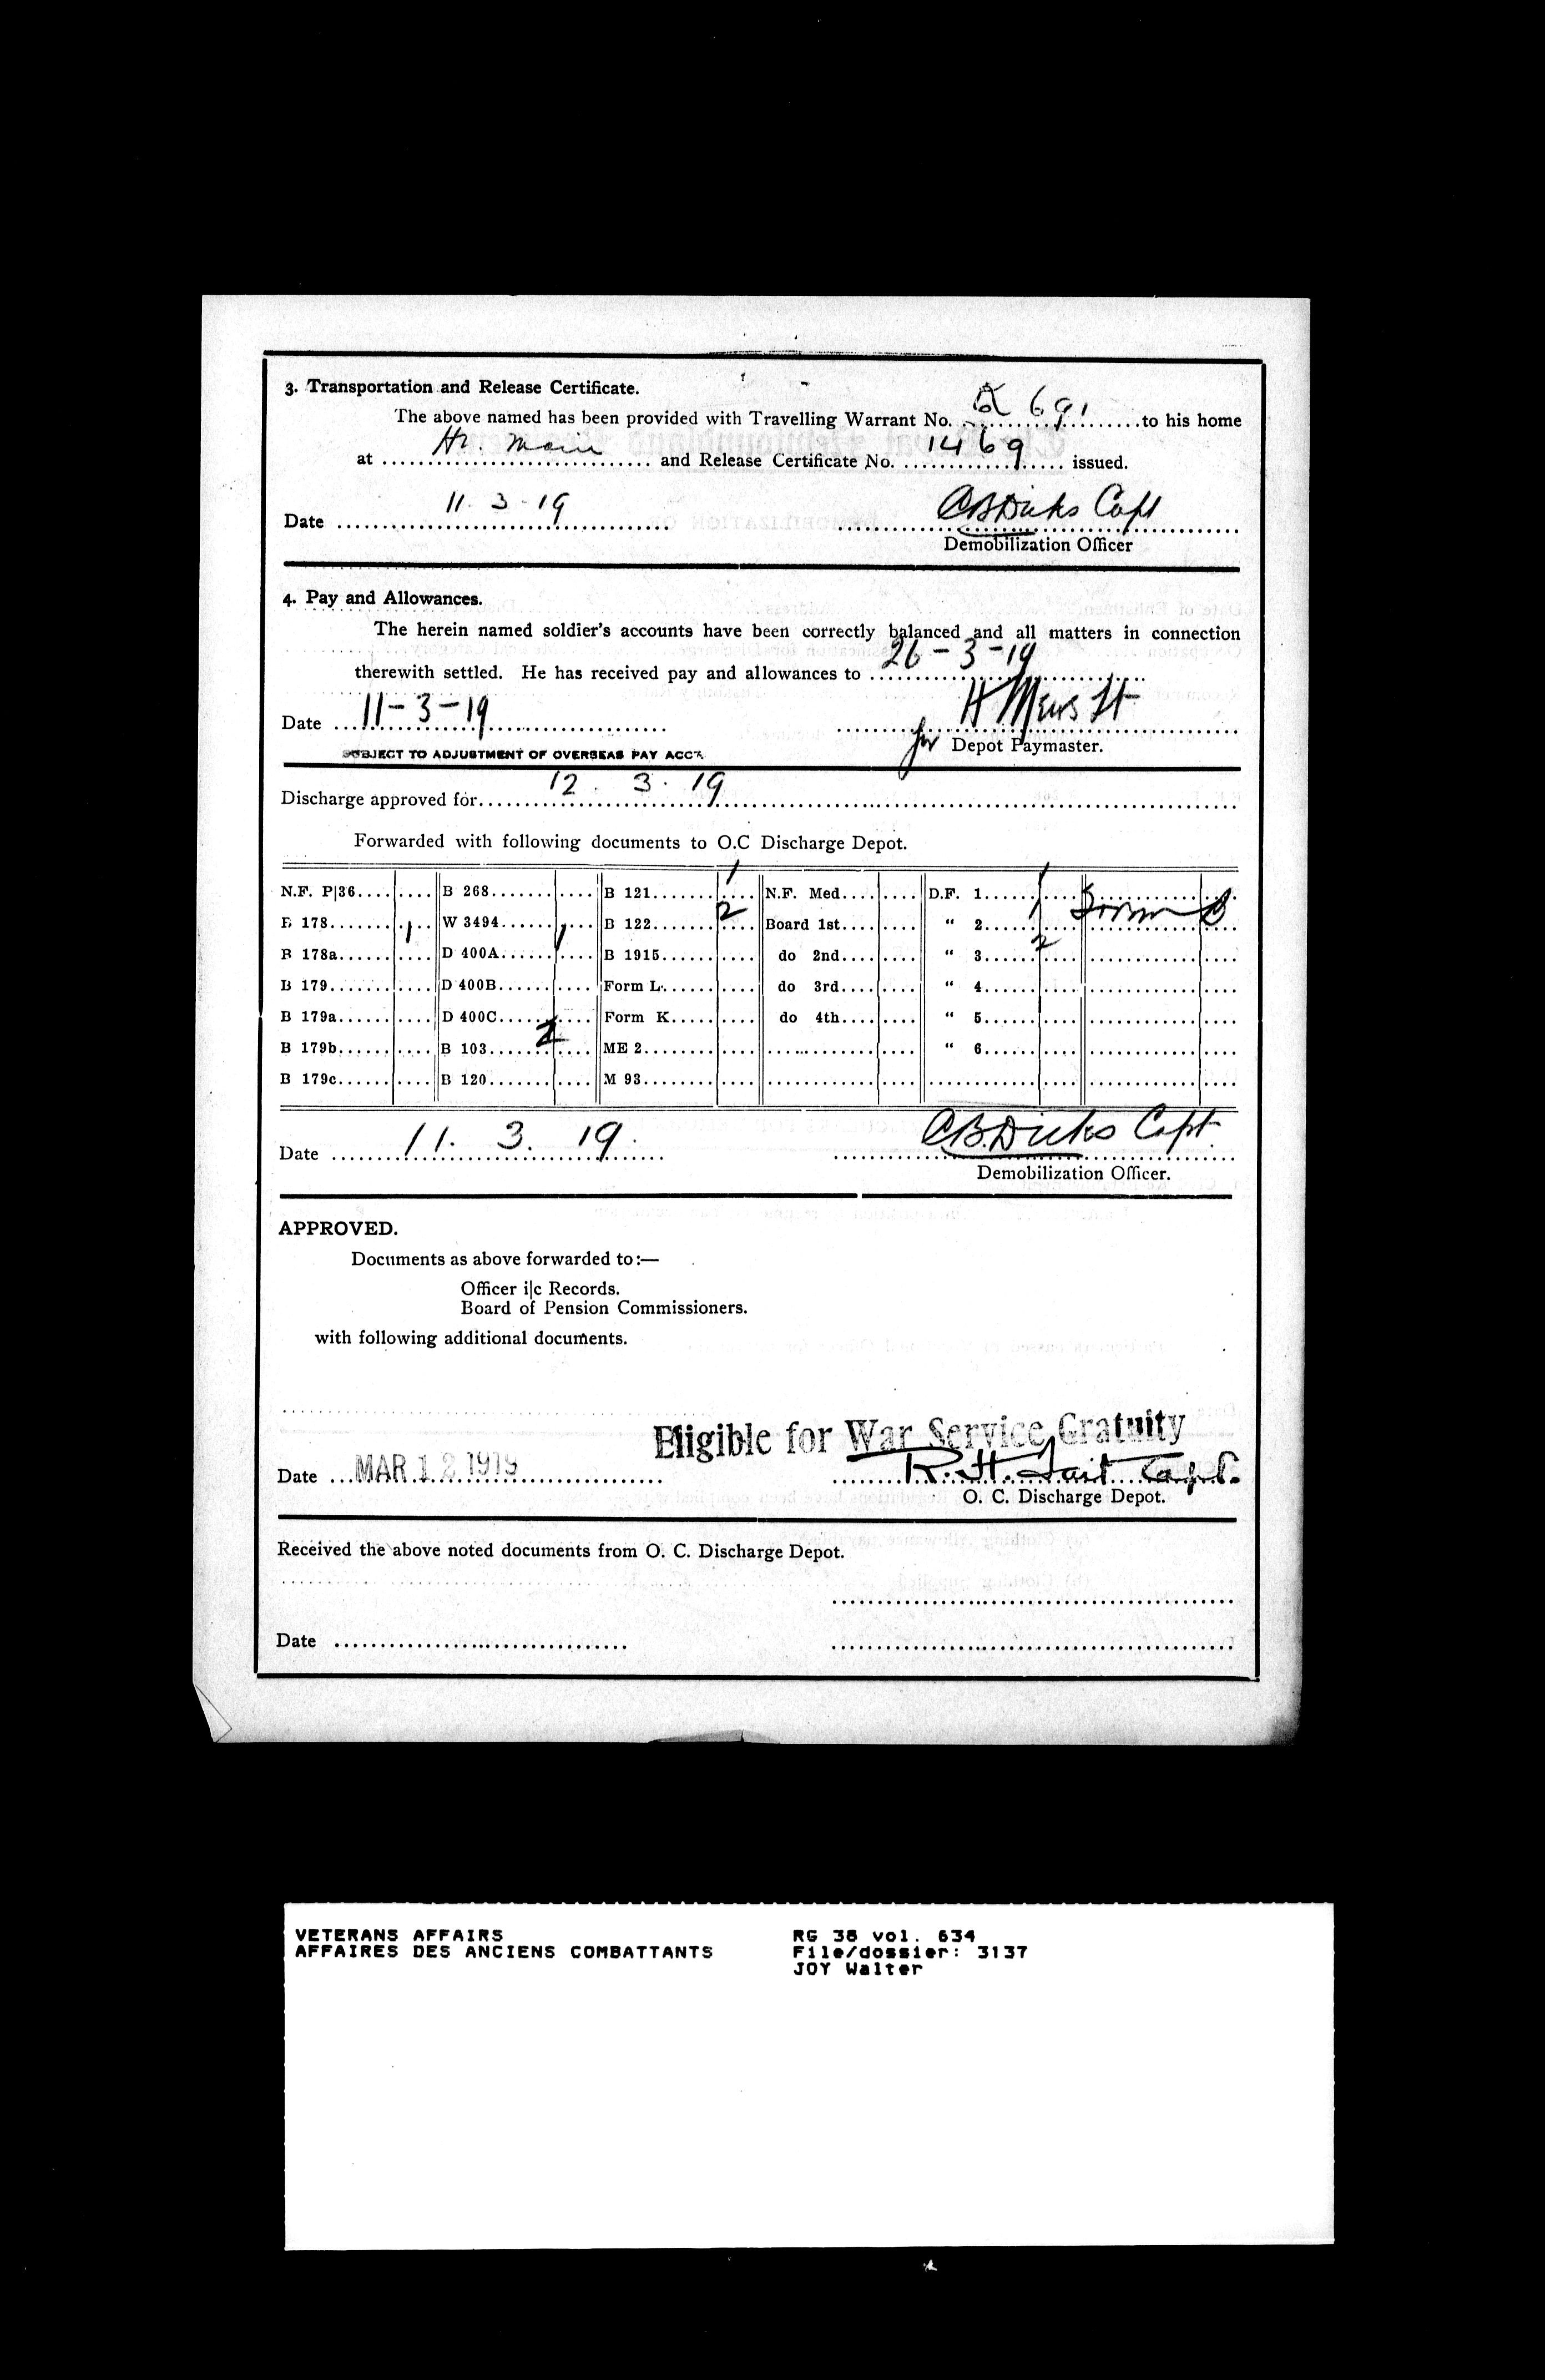 3. Transportation and Release Certificate.
The above named has been provided with Travelling Warrant No. 691 to his home
at Hr. Main and Release Certificate No. 1469 issued.
Date 11. 3 - 19 C B Dicks Capt
Demobilization Officer
4. Pay and Allowances.
The herein named soldier's accounts have been correctly balanced and all matters in connection
therewith settled. He has received pay and allowances to 26-3-19
Date 11-3-19 H Mews Lt
for Depot Paymaster.
SUBJECT TO ADJUSTMENT OF OVERSEAS PAY ACCT.
Discharge approved for 12. 3. 19
Forwarded with following documents to O.C Discharge Depot.
N.F. P|36 B 268 B 121 1 N.F. Med D.F. 1 1 Form B
B 178 1 W 3494 1 B 122 2 Board 1st " 2 1
B 178a D 400A B 1915 do 2nd " 3 2
B 179 D 400B Form L. do 3rd " 4
B 179a D 400C Form K do 4th " 5
B 179b B 103 2 ME 2 " 6
B 179c B 120 M 93
Date 11. 3. 19. C.B. Dicks Capt.
Demobilization Officer.
APPROVED.
Documents as above forwarded to:—
Officer i|c Records.
Board of Pension Commissioners.
with following additional documents.
Eligible for War Service Gratuity
Date MAR 12 1919 R. H. Tait Capt.
O. C. Discharge Depot.
Received the above noted documents from O. C. Discharge Depot.
Date
VETERANS AFFAIRS RG 38 vol. 634
AFFAIRES DES ANCIENS COMBATTANTS File/dossier: 3137
JOY Walter